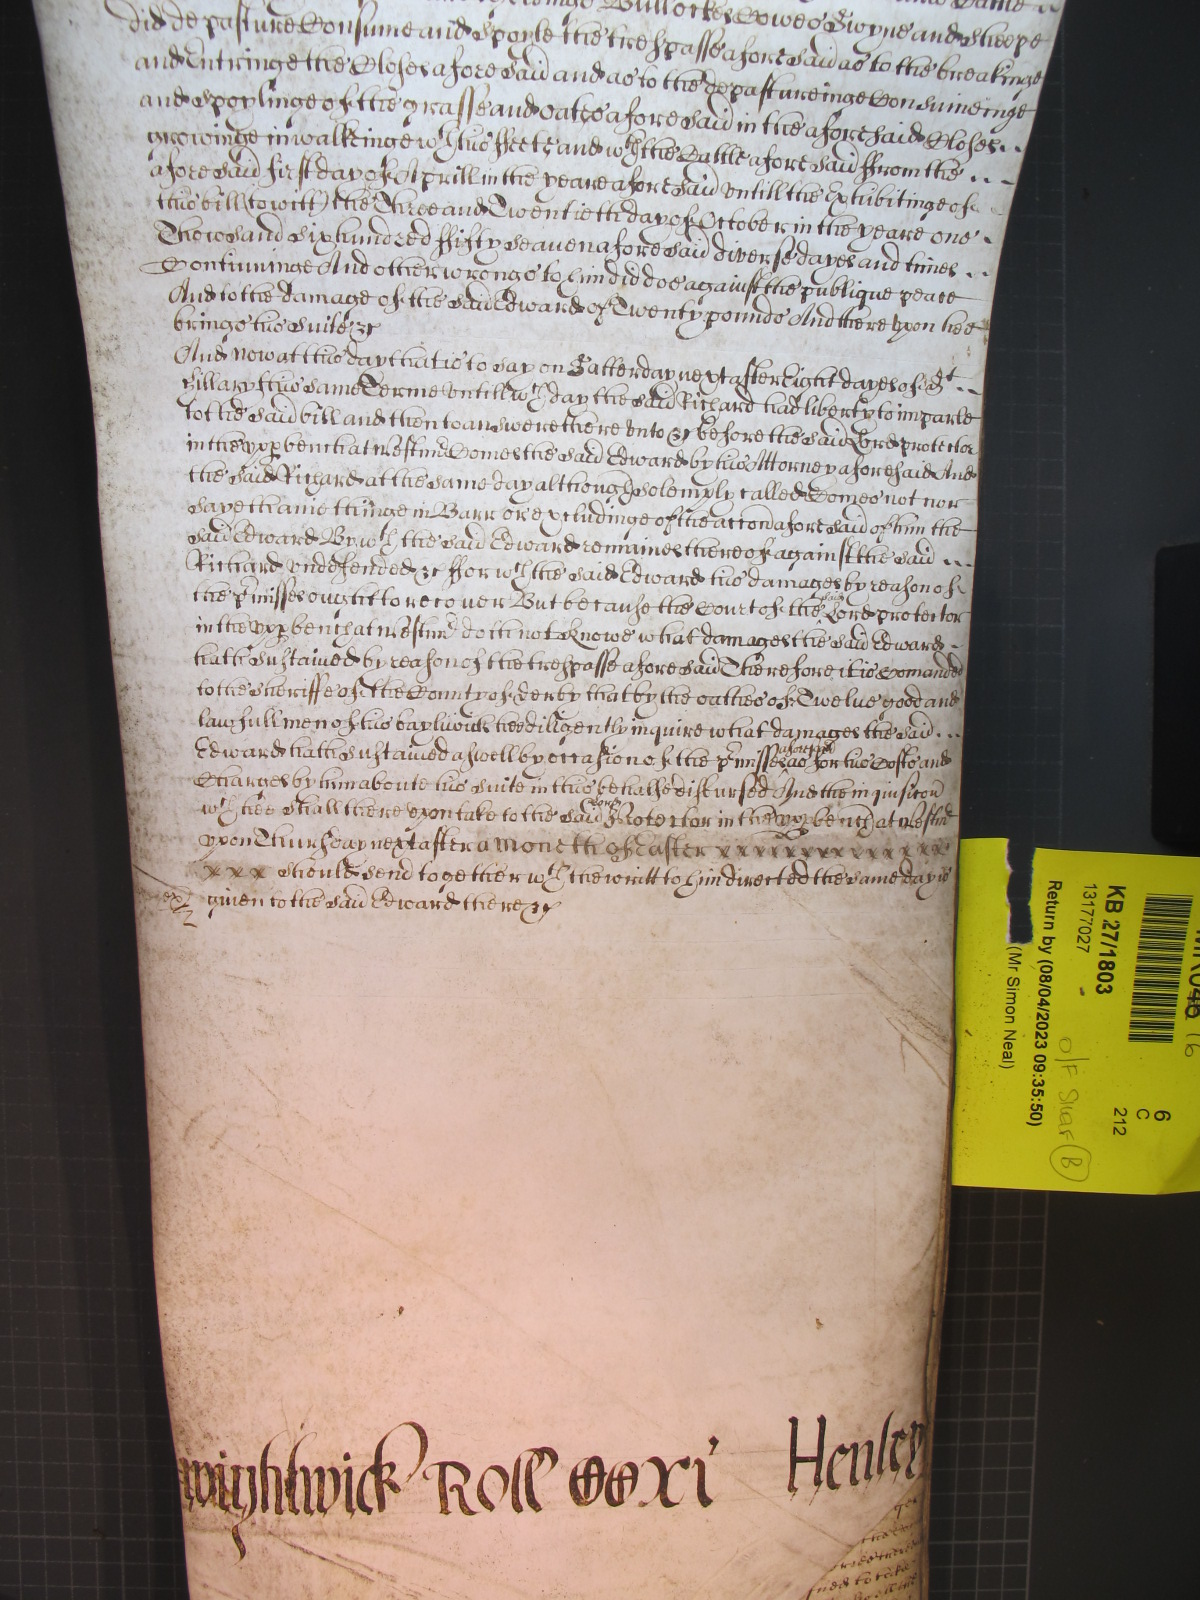 Bullockes Cowes Swyne and Sheepe
did depasture Consume and Spoyle the trespasse aforesaid as to the breakinge
and Entringe the Closes aforesaid and as to the depastureinge Consumeinge
and Spoylinge of the grasse and oates aforesaid in the aforesaid Closes
growinge in walkeinge wth his ffeete and wth the Cattle aforesaid ffrom the
aforesaid first day of Aprill in the yeare aforesaid untill the Exhibitinge of
this bill (to witt) the Three and Twentieth day of October in the yeare one
Thowsand Six hundred ffifty Seaven aforesaid diverse dayes and times
Continuinge And other wronge to him did doe against the publique peace
And to the damage of the said Edward of Twenty pounds And there upon hee
brings his Suite &c
And now at this day that is to say on Satterday next after Eight dayes of St
Hillary this same Terme untill wch day the said Richard had liberty to imparle
to the said bill and then to answere there unto &c before the said Lord protector
in the upp bench at Westmr Comes the said Edward by his Attorney aforesaid And
the said Richard at the same day although solemply called Comes not nor
sayeth any thinge in Barr or excludinge of the accon aforesaid of him the
said Edward By wch the said Edward remaines thereof against the said
Richard undefended &c ffor wch the said Edward his damages by reason of
the pmisses ought to recover But because the Court of the said Lord protector
in the upp bench at Westmr doth not Knowe what damages the said Edward
hath Sustained by reason of the trespasse aforesaid Therefore it is Comanded
to the Sheriffe of the County of derby that by the oathes of Twelve good and
lawfull men of his baylywick hee diligently inquire what damages the said
Edward hath Sustained aswell by occasion of the pmisses aforesaid as for his Costs and
Charges by him aboute his Suite in this behalfe disbursed And the inquisicon
wch hee shall there upon take to the said Lord Protector in the upp bench at Westmr
upon Thursday next after a moneth of Easter x x x x x x x x x x x
x x x should send together wth the writt to him directed the same day is
given to the said Edward there &c
Wightwick Roll CCXI Henley
KB 27/1803
13177027
Return by (08/04/2023 09:35:50)
(Mr Simon Neal)
6
C
212